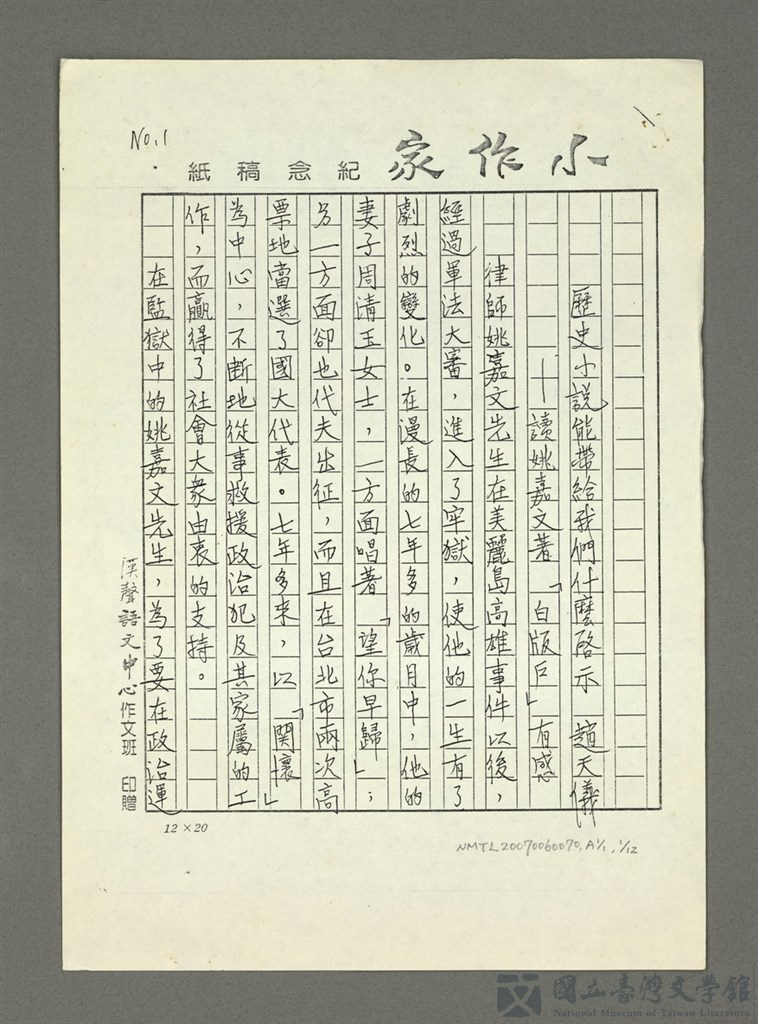 No.1
小作家
紀念稿紙
歷史小說能帶給我們什麼啓示 趙天儀
——讀姚嘉文著「白版戶」有感
律師姚嘉文先生在美麗島高雄事件以後，
經過軍法大審，進入了牢獄，使他的一生有了
劇烈的變化。在漫長的七年多的歲月中，他的
妻子周清玉女士，一方面唱著「望你早歸」；
另一方面卻也代夫出征，而且在台北市兩次高
票地當選了國大代表。七年多來，以「関懷」
為中心，不斷地從事救援政治犯及其家屬的工
作，而贏得了社會大衆由衷的支持。
在監獄中的姚嘉文先生，為了要在政治運
漢聲語文中心作文班 印贈
12×20
NMTL20070060070,A1/1,1/12
國立臺灣文學館
National Museum of Taiwan Literature